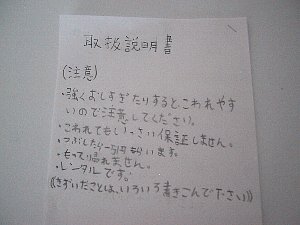 取扱説明書
(注意)
・強くおしすぎたりするとこわれやす
いので注意してください。
・こわれてもいっさい保証しません。
・つぶしたら一万円払います。
・もって帰れません。
・レンタルです。
《きずいたことは、いろいろ書きこんで下さい》